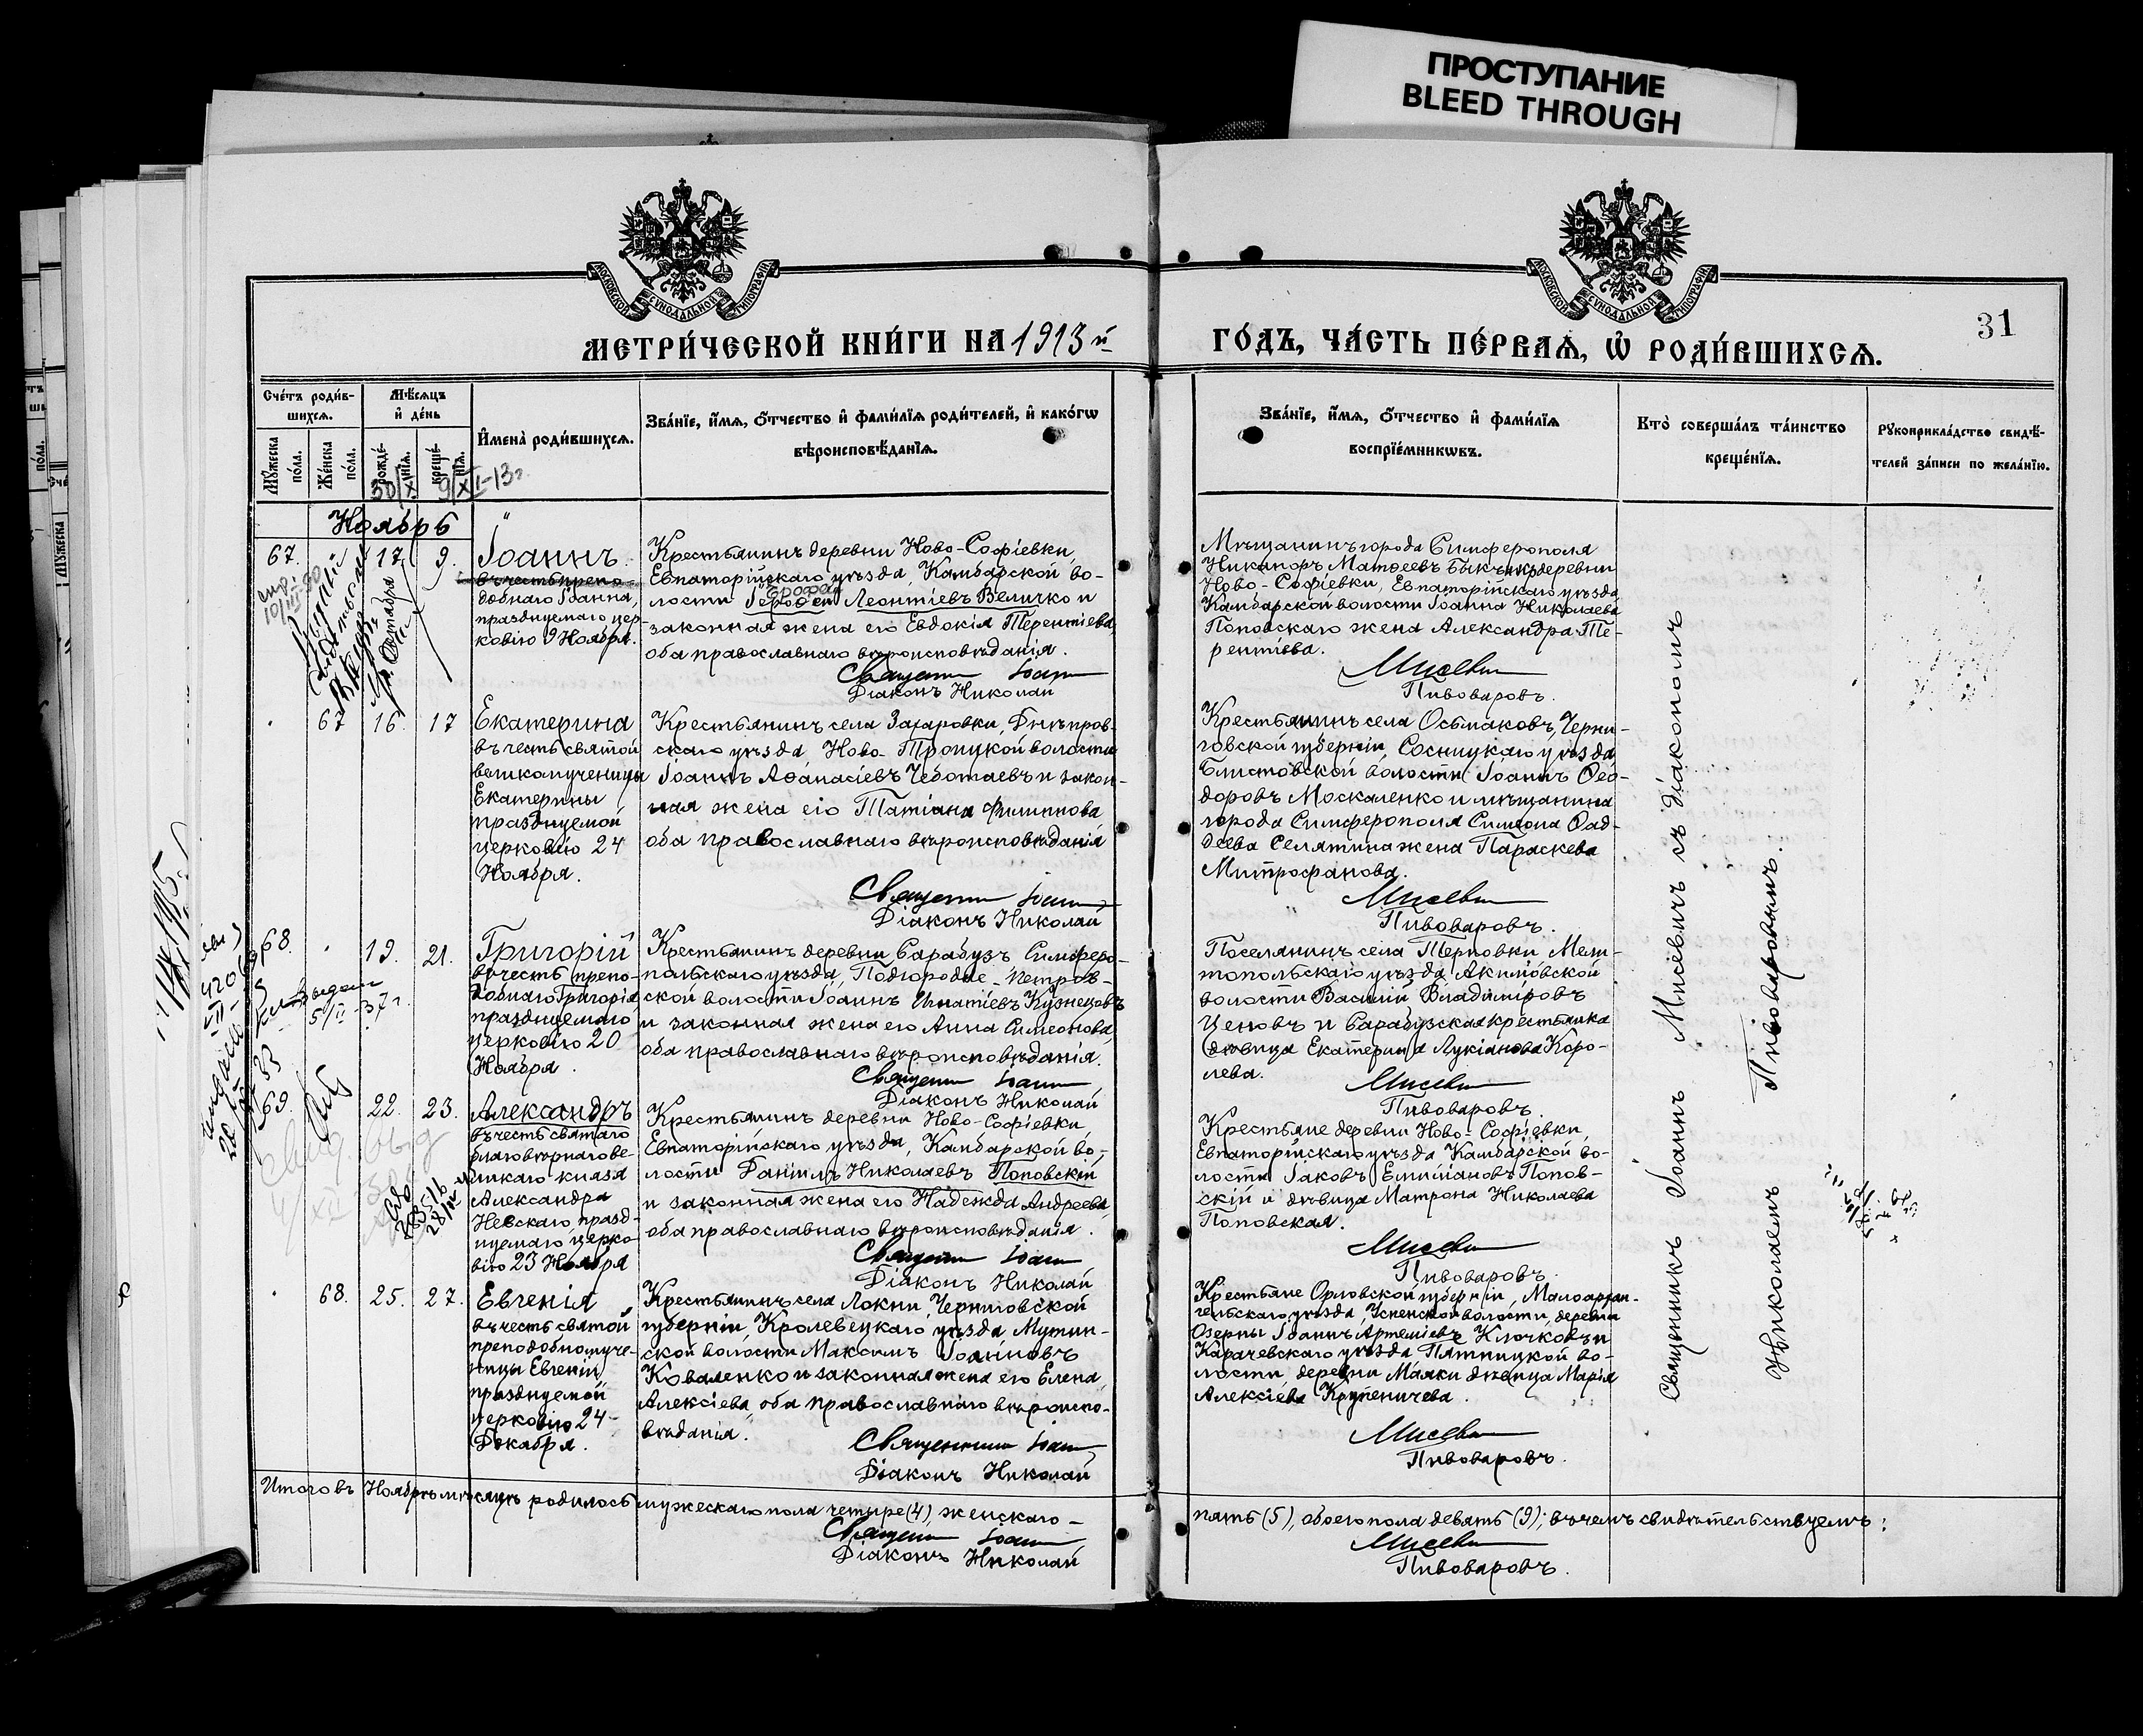 ПРОСТУПАНИЕ
BLEED THROUGH
МОСКОВСКОЙ СѴНОДАЛЬНОЙ ТИПОГРАФІИ
МОСКОВСКОЙ СѴНОДАЛЬНОЙ ТИПОГРАФІИ
31
МЕТРИ́ЧЕСКОЙ КНИ́ГИ НА 1913й
ГО́ДЪ, ЧА́СТЬ ПЕ́РВАѦ, Ѡ РОДИ́ВШИХСѦ.
Сче́тъ роди́в-
шихсѧ.
Мꙋ́жеска по́ла.
Же́нска по́ла.
Мѣ́сѧцъ
и҆ де́нь
рожде́нїѧ.
креще́нїѧ.
И҆мена̀ роди́вшихсѧ.
Зва́нїе, и҆́мѧ, ѻ҆́тчество и҆ фами́лїѧ роди́телей, и҆ како́гѡ
вѣроисповѣ́данїѧ.
Зва́нїе, и҆́мѧ, ѻ҆́тчество и҆ фами́лїѧ
воспрїе́мникѡвъ.
Кто̀ соверша́лъ та́инство
креще́нїѧ.
Рꙋкоприкла́дство свидѣ́-
телей за́писи по жела́нїю.
30/X 9/XI-13г.
Ноябрь
67. 17 9.
Іоаннъ
въ честь препо-
добнаго Іоанна,
празднуемаго цер-
ковію 9 Ноября.
Крестьянинъ деревни Ново-Софіевки,
Евпаторійскаго уѣзда, Камбарской во-
лости Леонтіевъ Величко и
законная жена его Евдокія Терентіева,
оба православнаго вѣроисповѣданія.
Священникъ Іоаннъ
Діаконъ Николай
Мѣщанинъ города Симферополя
Никаноръ Матѳеевъ Быкъ и кр. деревни
Ново-Софіевки, Евпаторійскаго уѣзда
Камбарской волости Іоанна Николаева
Поповскаго жена Александра Те-
рентіева.
Мисевичъ
Пивоваровъ.
67 16. 17
Екатерина
въ честь святой
великомученицы
Екатерины
празднуемой
церковію 24
Ноября.
Крестьянинъ села Захаровки, Днѣпров-
скаго уѣзда, Ново-Троицкой волости
Іоаннъ Аѳанасіевъ Чеботаевъ и закон-
ная жена его Татіана Филиппова
оба православнаго вѣроисповѣданія
Священникъ Іоаннъ
Діаконъ Николай
Крестьянинъ села Осьмаковъ, Черни-
говской губерніи, Сосницкаго уѣзда
Блистовской волости Іоаннъ Ѳео-
доровъ Москаленко и мѣщанина
города Симферополя Симеона Ѳад-
деева Селятина жена Параскева
Митрофанова.
Мисевичъ
Пивоваровъ.
68. 19. 21.
Григорій
въ честь препо-
добнаго Григорія,
празднуемаго
церковію 20
Ноября.
Крестьянинъ деревни Сарабузъ Симферо-
польскаго уѣзда, Подгородне-Петров-
ской волости Іоаннъ Игнатіевъ Кузнецовъ
и законная жена его Анна Симеонова,
оба православнаго вѣроисповѣданія.
Священникъ Іоаннъ
Діаконъ Николай
Поселянинъ села Терновки, Мели-
топольскаго уѣзда Акимовской
волости Василій Владиміровъ
Ценовъ и Сарабузская крестьянка
дѣвица Екатерина Лукіанова Коро-
лева.
Мисевичъ
Пивоваровъ.
69. 22. 23.
Александръ
въ честь святаго
благовѣрнаго ве-
ликаго князя
Александра
Невскаго, празд-
нуемаго церко-
вію 23 Ноября
Крестьянинъ деревни Ново-Софіевки
Евпаторійскаго уѣзда, Камбарской во-
лости Даніилъ Николаевъ Поповскій
и законная жена его Надежда Андреева,
оба православнаго вѣроисповѣданія.
Священникъ Іоаннъ
Діаконъ Николай
Крестьяне деревни Ново-Софіевки,
Евпаторійскаго уѣзда Камбарской во-
лости Іаковъ Емиліановъ Попов-
скій и дѣвица Матрона Николаева
Поповская.
Мисевичъ
Пивоваровъ.
68. 25. 27.
Евгенія
въ честь святой
преподобномуче-
ницы Евгеніи,
празднуемой
церковію 24
Декабря.
Крестьянинъ села Локни Черниговской
губерніи, Кролевецкаго уѣзда, Мутин-
ской волости Максимъ Іоанновъ
Коваленко и законная жена его Елена
Алексіева, оба православнаго вѣроиспо-
вѣданія.
Священникъ Іоаннъ
Діаконъ Николай
Крестьяне Орловской губерніи, Малоархан-
гельскаго уѣзда, Успенской волости, деревни
Озерны Іоаннъ Артеміевъ Клочковъ и
Карачевскаго уѣзда Пятницкой во-
лости, деревни Маяки дѣвица Марія
Алексіева Крупеничева.
Мисевичъ
Пивоваровъ.
Священникъ Іоаннъ Мисевичъ съ діакономъ
Николаемъ Пивоваровымъ.
Итого въ Ноябрѣ мѣсяцѣ родилось мужескаго пола четыре (4), женскаго –
пять (5), обоего пола девять (9); въ чемъ свидѣтельствуемъ:
Священникъ Іоаннъ
Діаконъ Николай
Мисевичъ
Пивоваровъ.